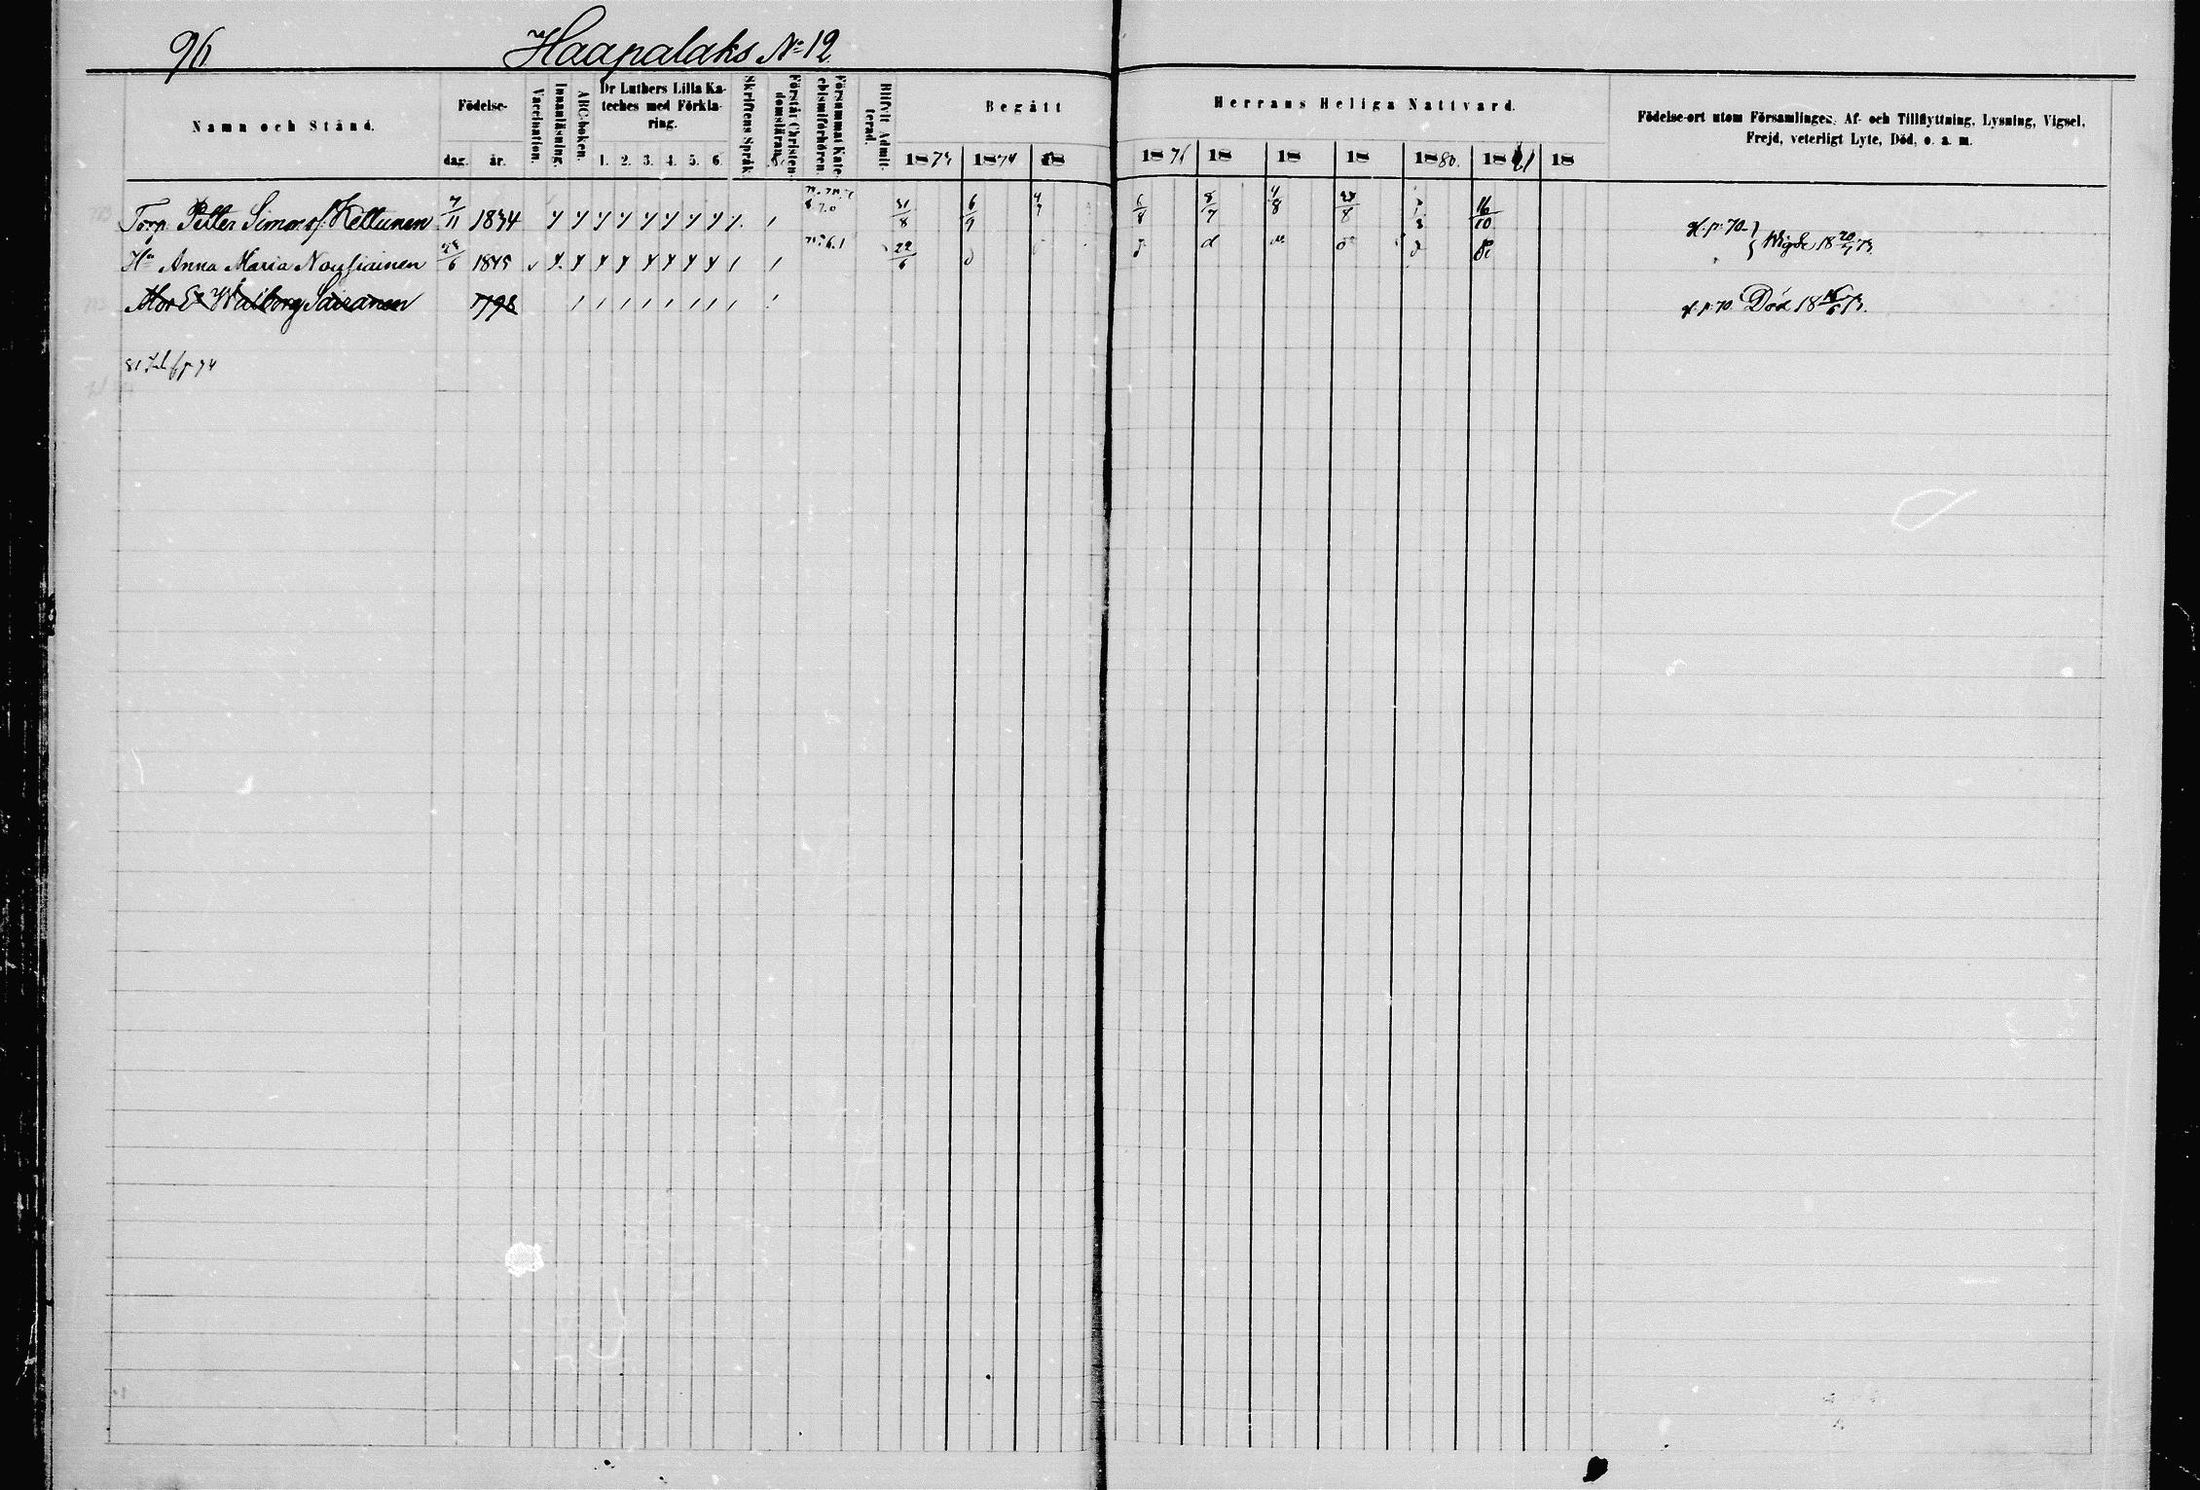 96
Haapalaks No 12
Namn och Stånd.
Födelse-
dag. år.
Vaccination.
Innanläsning.
ABC-boken.
Dr Luthers Lilla Ka-
teches med Förkla-
ring.
1. 2. 3. 4. 5. 6.
Skriftens Språk.
Förstår Christen-
domsläran.
Försummat Kate-
chismiförhören.
Blifvit Admit-
terad.
Begått
1873 1874 18
Herrans Heliga Nattvard.
1876 18 18 18 1880. 1881 18
Födelse-ort utom Församlingen, Af- och Tillflyttning, Lysning, Vigsel,
Frejd, veterligt Lyte, Död, o. a. m.
Torp. Petter Simonsf. Kettunen 7/11 1834 31/8 6/9 8/7 4/8 28/8 16/10 p. 70 Vigde 18 20/7 73.
Hu Anna Maria Nousiainen 6 1845 22/6
Mor Walborg Sairanen 1798 p. 70. Död 18 16/6 73.
81 p 94